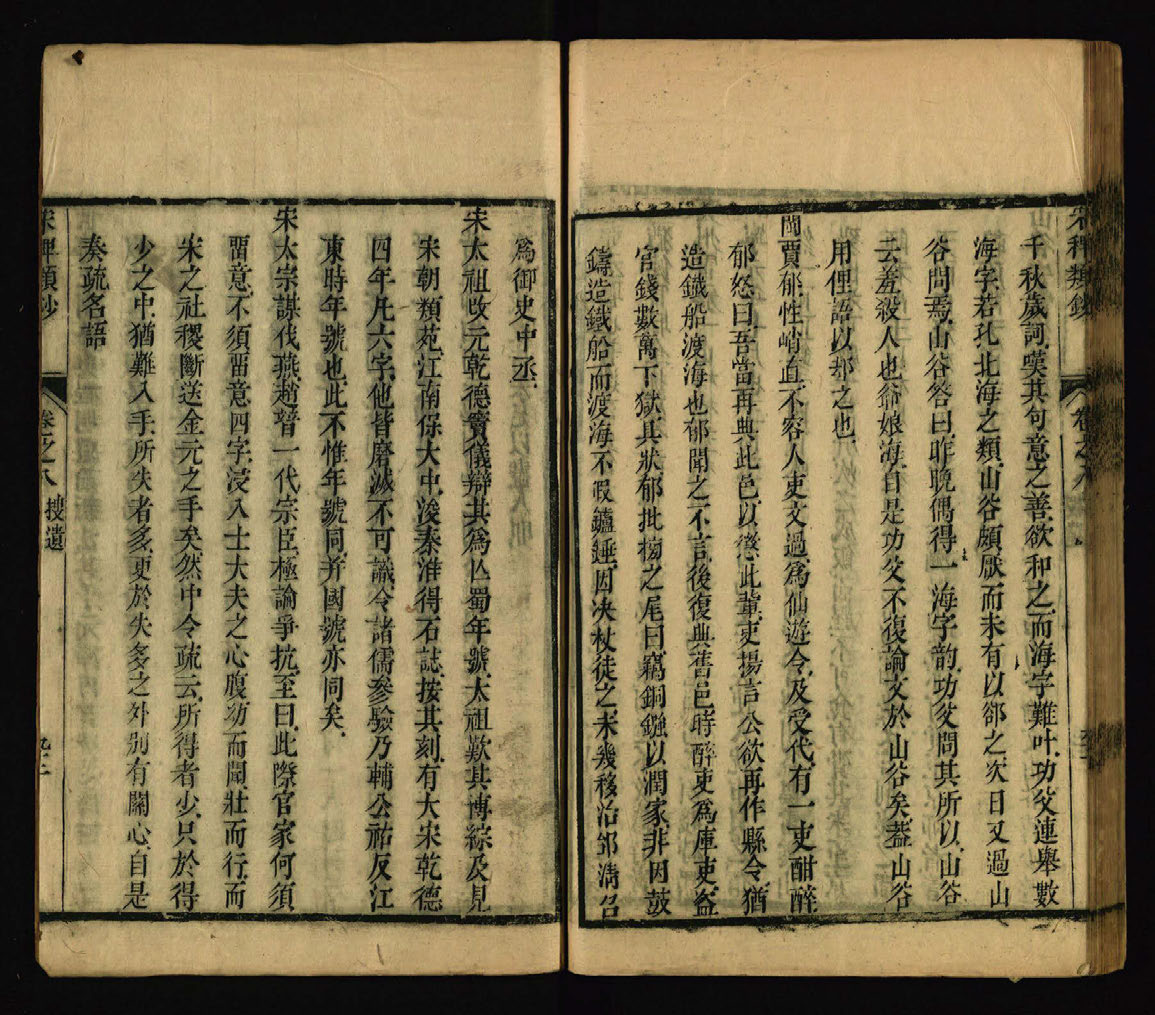 宋稗類鈔
卷之八
千秋歲詞嘆其句意之善欲和之而海字難叶功父連舉數
海字若孔北海之類山谷頗厭而未有以卻之次日又過山
谷問焉山谷答曰昨晚偶得一海字韵功父問其所以山谷
云羞殺人也爺娘海自是功父不復論文於山谷矣蓋山谷
用俚語以却之也
閩賈郁性峭直不容人吏文過爲仙遊令及受代有一吏酣醉
郁怒曰吾當再典此邑以懲此輩吏揚言公欲再作縣令猶
造鐵船渡海也郁聞之不言後復典舊邑時醉吏爲庫吏盜
官錢數萬下獄具狀郁批櫥之尾曰竊銅鏹以潤家非因鼓
鑄造鐵船而渡海不暇鑪錘因决杖徒之未幾移治邠淸召
爲御史中丞
宋太祖改元乾德竇儀辯其爲亾蜀年號太祖歎其博綜及見
宋朝類苑江南保大中浚秦淮得石誌按其刻有大宋乾德
四年凡六字他皆磨滅不可識令諸儒參驗乃輔公祏反江
東時年號也此不惟年號同并國號亦同矣
宋太宗謀伐燕趙普一代宗臣極論爭抗至曰此際官家何須
畱意不須畱意四字浸入士大夫之心腹幼而聞壯而行而
宋之社稷斷送金元之手矣然中令疏云所得者少只於得
少之中猶難入手所失者多更於失多之外别有關心自是
奏疏名語
宋稗類鈔
卷之八
搜遺
九二